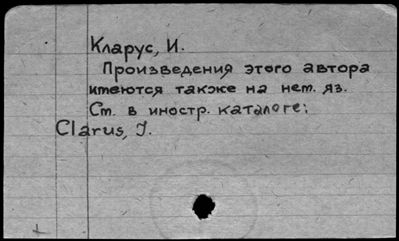 Кларус, И.
Произведения этого автора
имеются также на нем. яз.
См. в иностр. каталоге:
Clarus, J.